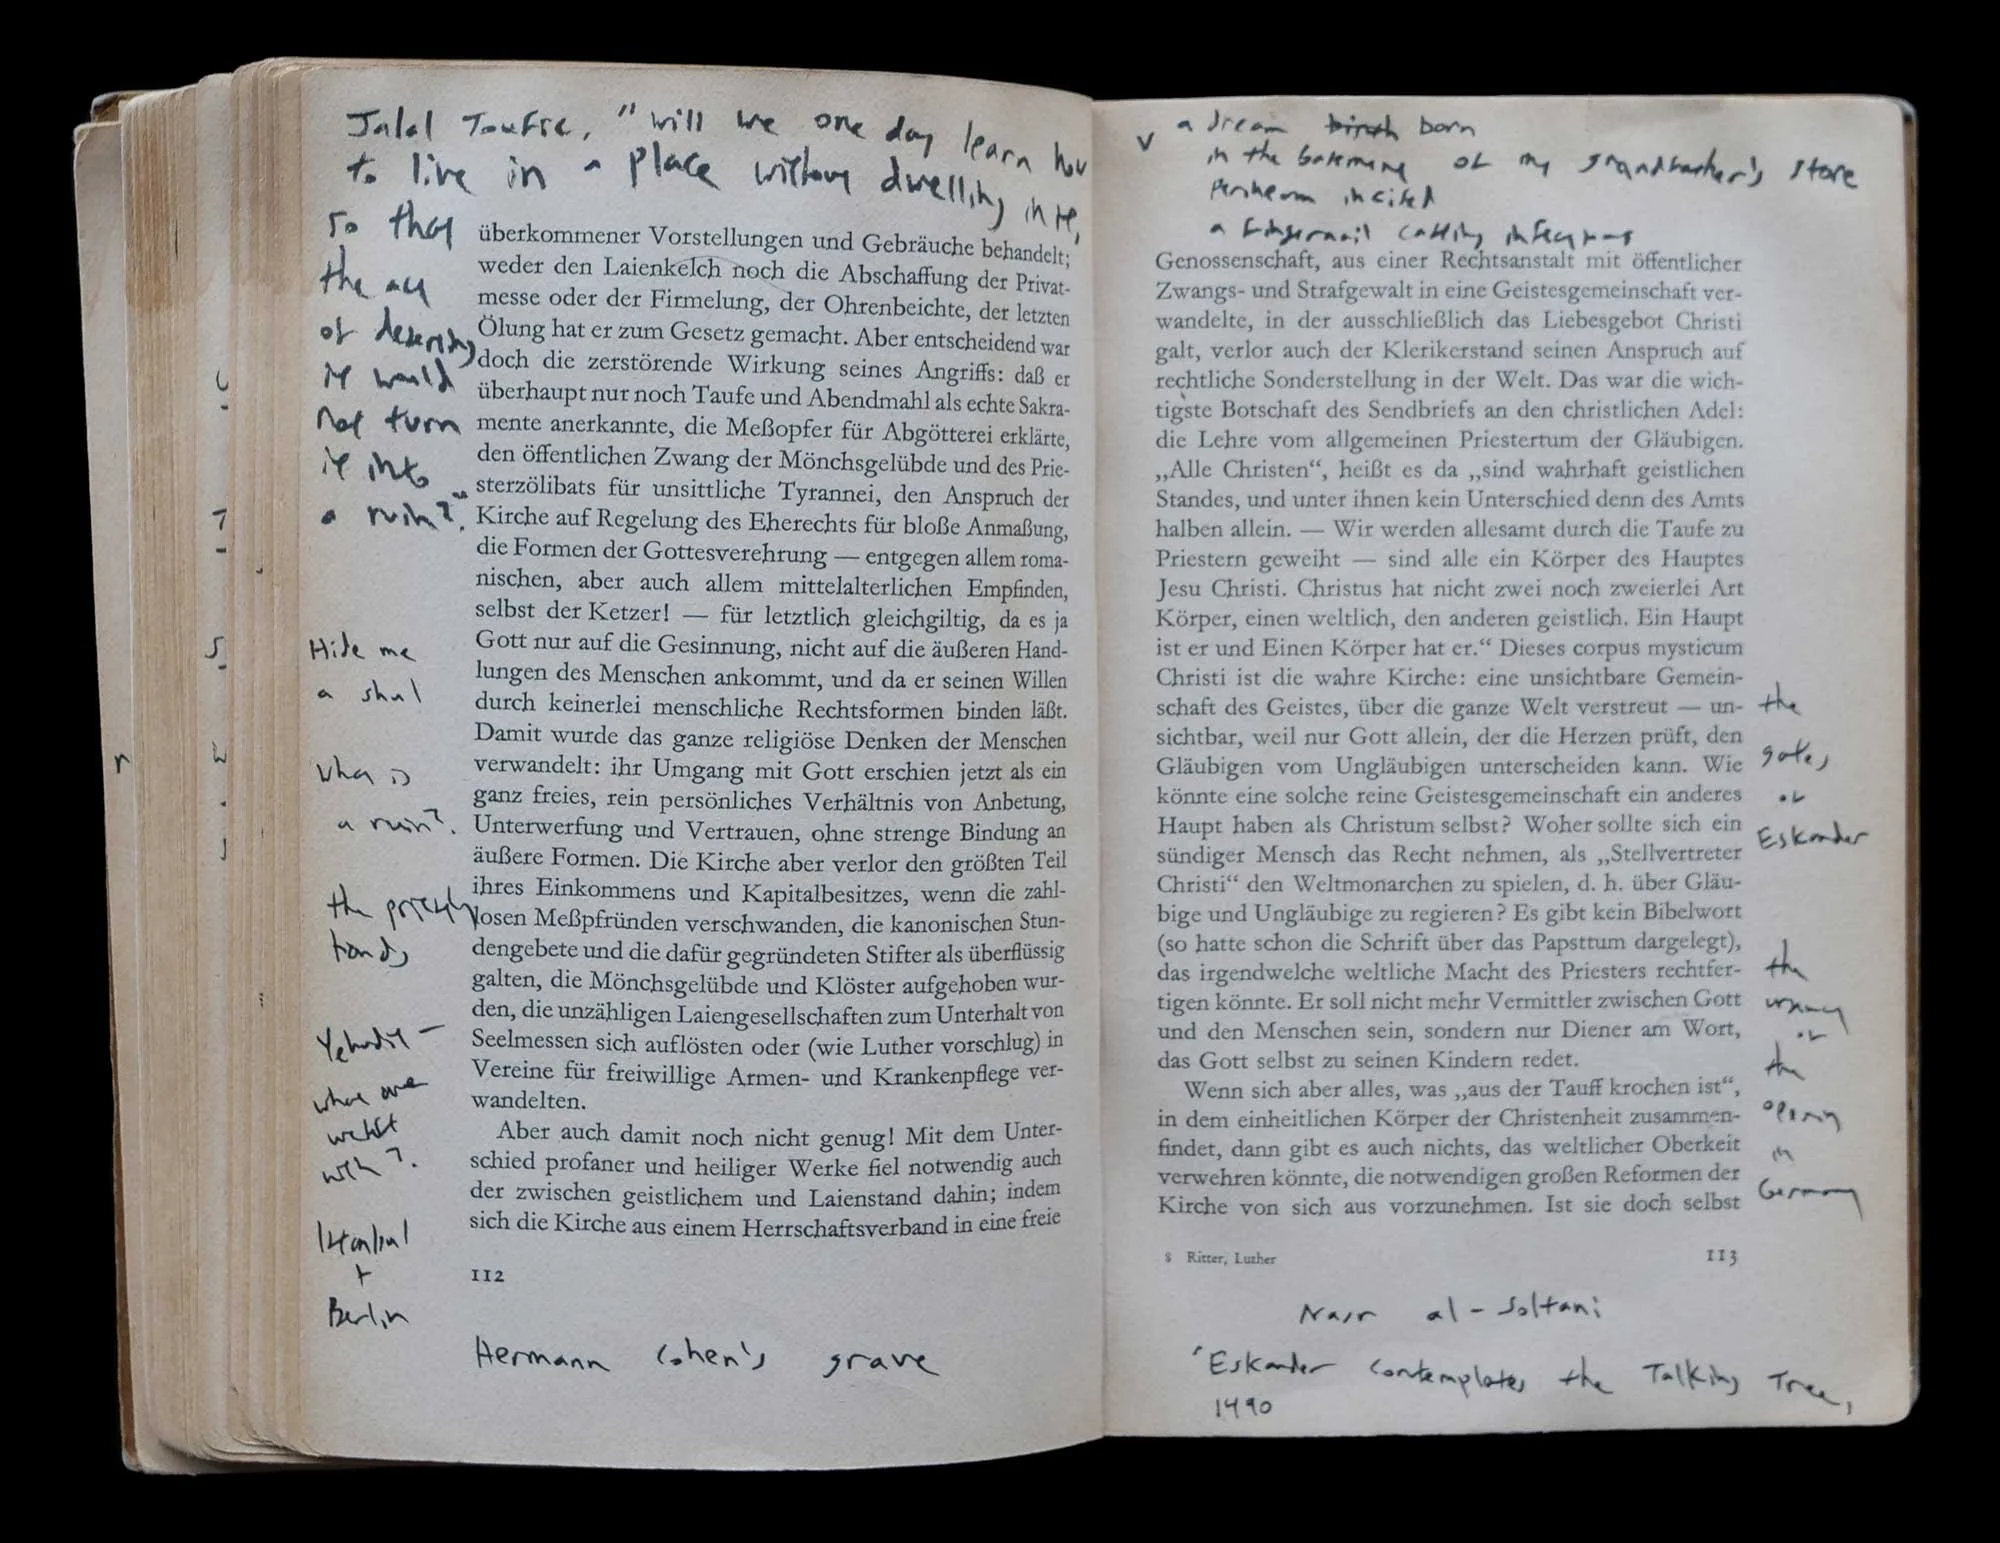 Jalal Toufic, "will we one day learn how
to live in a place without dwelling in it,
so that
the act
of deserting
it would
not turn
it into
a ruin?"
überkommener Vorstellungen und Gebräuche behandelt;
weder den Laienkelch noch die Abschaffung der Privat-
messe oder der Firmelung, der Ohrenbeichte, der letzten
Ölung hat er zum Gesetz gemacht. Aber entscheidend war
doch die zerstörende Wirkung seines Angriffs: daß er
überhaupt nur noch Taufe und Abendmahl als echte Sakra-
mente anerkannte, die Meßopfer für Abgötterei erklärte,
den öffentlichen Zwang der Mönchsgelübde und des Prie-
sterzölibats für unsittliche Tyrannei, den Anspruch der
Kirche auf Regelung des Eherechts für bloße Anmaßung,
die Formen der Gottesverehrung — entgegen allem roma-
nischen, aber auch allem mittelalterlichen Empfinden,
selbst der Ketzer! — für letztlich gleichgiltig, da es ja
Gott nur auf die Gesinnung, nicht auf die äußeren Hand-
lungen des Menschen ankommt, und da er seinen Willen
durch keinerlei menschliche Rechtsformen binden läßt.
Damit wurde das ganze religiöse Denken der Menschen
verwandelt: ihr Umgang mit Gott erschien jetzt als ein
ganz freies, rein persönliches Verhältnis von Anbetung,
Unterwerfung und Vertrauen, ohne strenge Bindung an
äußere Formen. Die Kirche aber verlor den größten Teil
ihres Einkommens und Kapitalbesitzes, wenn die zahl-
losen Meßpfründen verschwanden, die kanonischen Stun-
dengebete und die dafür gegründeten Stifter als überflüssig
galten, die Mönchsgelübde und Klöster aufgehoben wur-
den, die unzähligen Laiengesellschaften zum Unterhalt von
Seelmessen sich auflösten oder (wie Luther vorschlug) in
Vereine für freiwillige Armen- und Krankenpflege ver-
wandelten.
Aber auch damit noch nicht genug! Mit dem Unter-
schied profaner und heiliger Werke fiel notwendig auch
der zwischen geistlichem und Laienstand dahin; indem
sich die Kirche aus einem Herrschaftsverband in eine freie
Hide me
a shul
what is
a ruin?
the priestly
hands
Yehudit —
what are
we left
with?
Istanbul
+
Berlin
112
Hermann Cohen's grave
v a dream birth born
in the basement of my grandfather's store
incited
a fingernail
Genossenschaft, aus einer Rechtsanstalt mit öffentlicher
Zwangs- und Strafgewalt in eine Geistesgemeinschaft ver-
wandelte, in der ausschließlich das Liebesgebot Christi
galt, verlor auch der Klerikerstand seinen Anspruch auf
rechtliche Sonderstellung in der Welt. Das war die wich-
tigste Botschaft des Sendbriefs an den christlichen Adel:
die Lehre vom allgemeinen Priestertum der Gläubigen.
„Alle Christen“, heißt es da „sind wahrhaft geistlichen
Standes, und unter ihnen kein Unterschied denn des Amts
halben allein. — Wir werden allesamt durch die Taufe zu
Priestern geweiht — sind alle ein Körper des Hauptes
Jesu Christi. Christus hat nicht zwei noch zweierlei Art
Körper, einen weltlich, den anderen geistlich. Ein Haupt
ist er und Einen Körper hat er.“ Dieses corpus mysticum
Christi ist die wahre Kirche: eine unsichtbare Gemein-
schaft des Geistes, über die ganze Welt verstreut — un-
sichtbar, weil nur Gott allein, der die Herzen prüft, den
Gläubigen vom Ungläubigen unterscheiden kann. Wie
könnte eine solche reine Geistesgemeinschaft ein anderes
Haupt haben als Christum selbst? Woher sollte sich ein
sündiger Mensch das Recht nehmen, als „Stellvertreter
Christi“ den Weltmonarchen zu spielen, d. h. über Gläu-
bige und Ungläubige zu regieren? Es gibt kein Bibelwort
(so hatte schon die Schrift über das Papsttum dargelegt),
das irgendwelche weltliche Macht des Priesters rechtfer-
tigen könnte. Er soll nicht mehr Vermittler zwischen Gott
und den Menschen sein, sondern nur Diener am Wort,
das Gott selbst zu seinen Kindern redet.
Wenn sich aber alles, was „aus der Tauff krochen ist“,
in dem einheitlichen Körper der Christenheit zusammen-
findet, dann gibt es auch nichts, das weltlicher Oberkeit
verwehren könnte, die notwendigen großen Reformen der
Kirche von sich aus vorzunehmen. Ist sie doch selbst
the
gates
of
Eskander
the
urgency
of
the
opening
in
Germany
8 Ritter, Luther
113
Nasr al-Soltani
'Eskander contemplates the Talking Tree,
1490